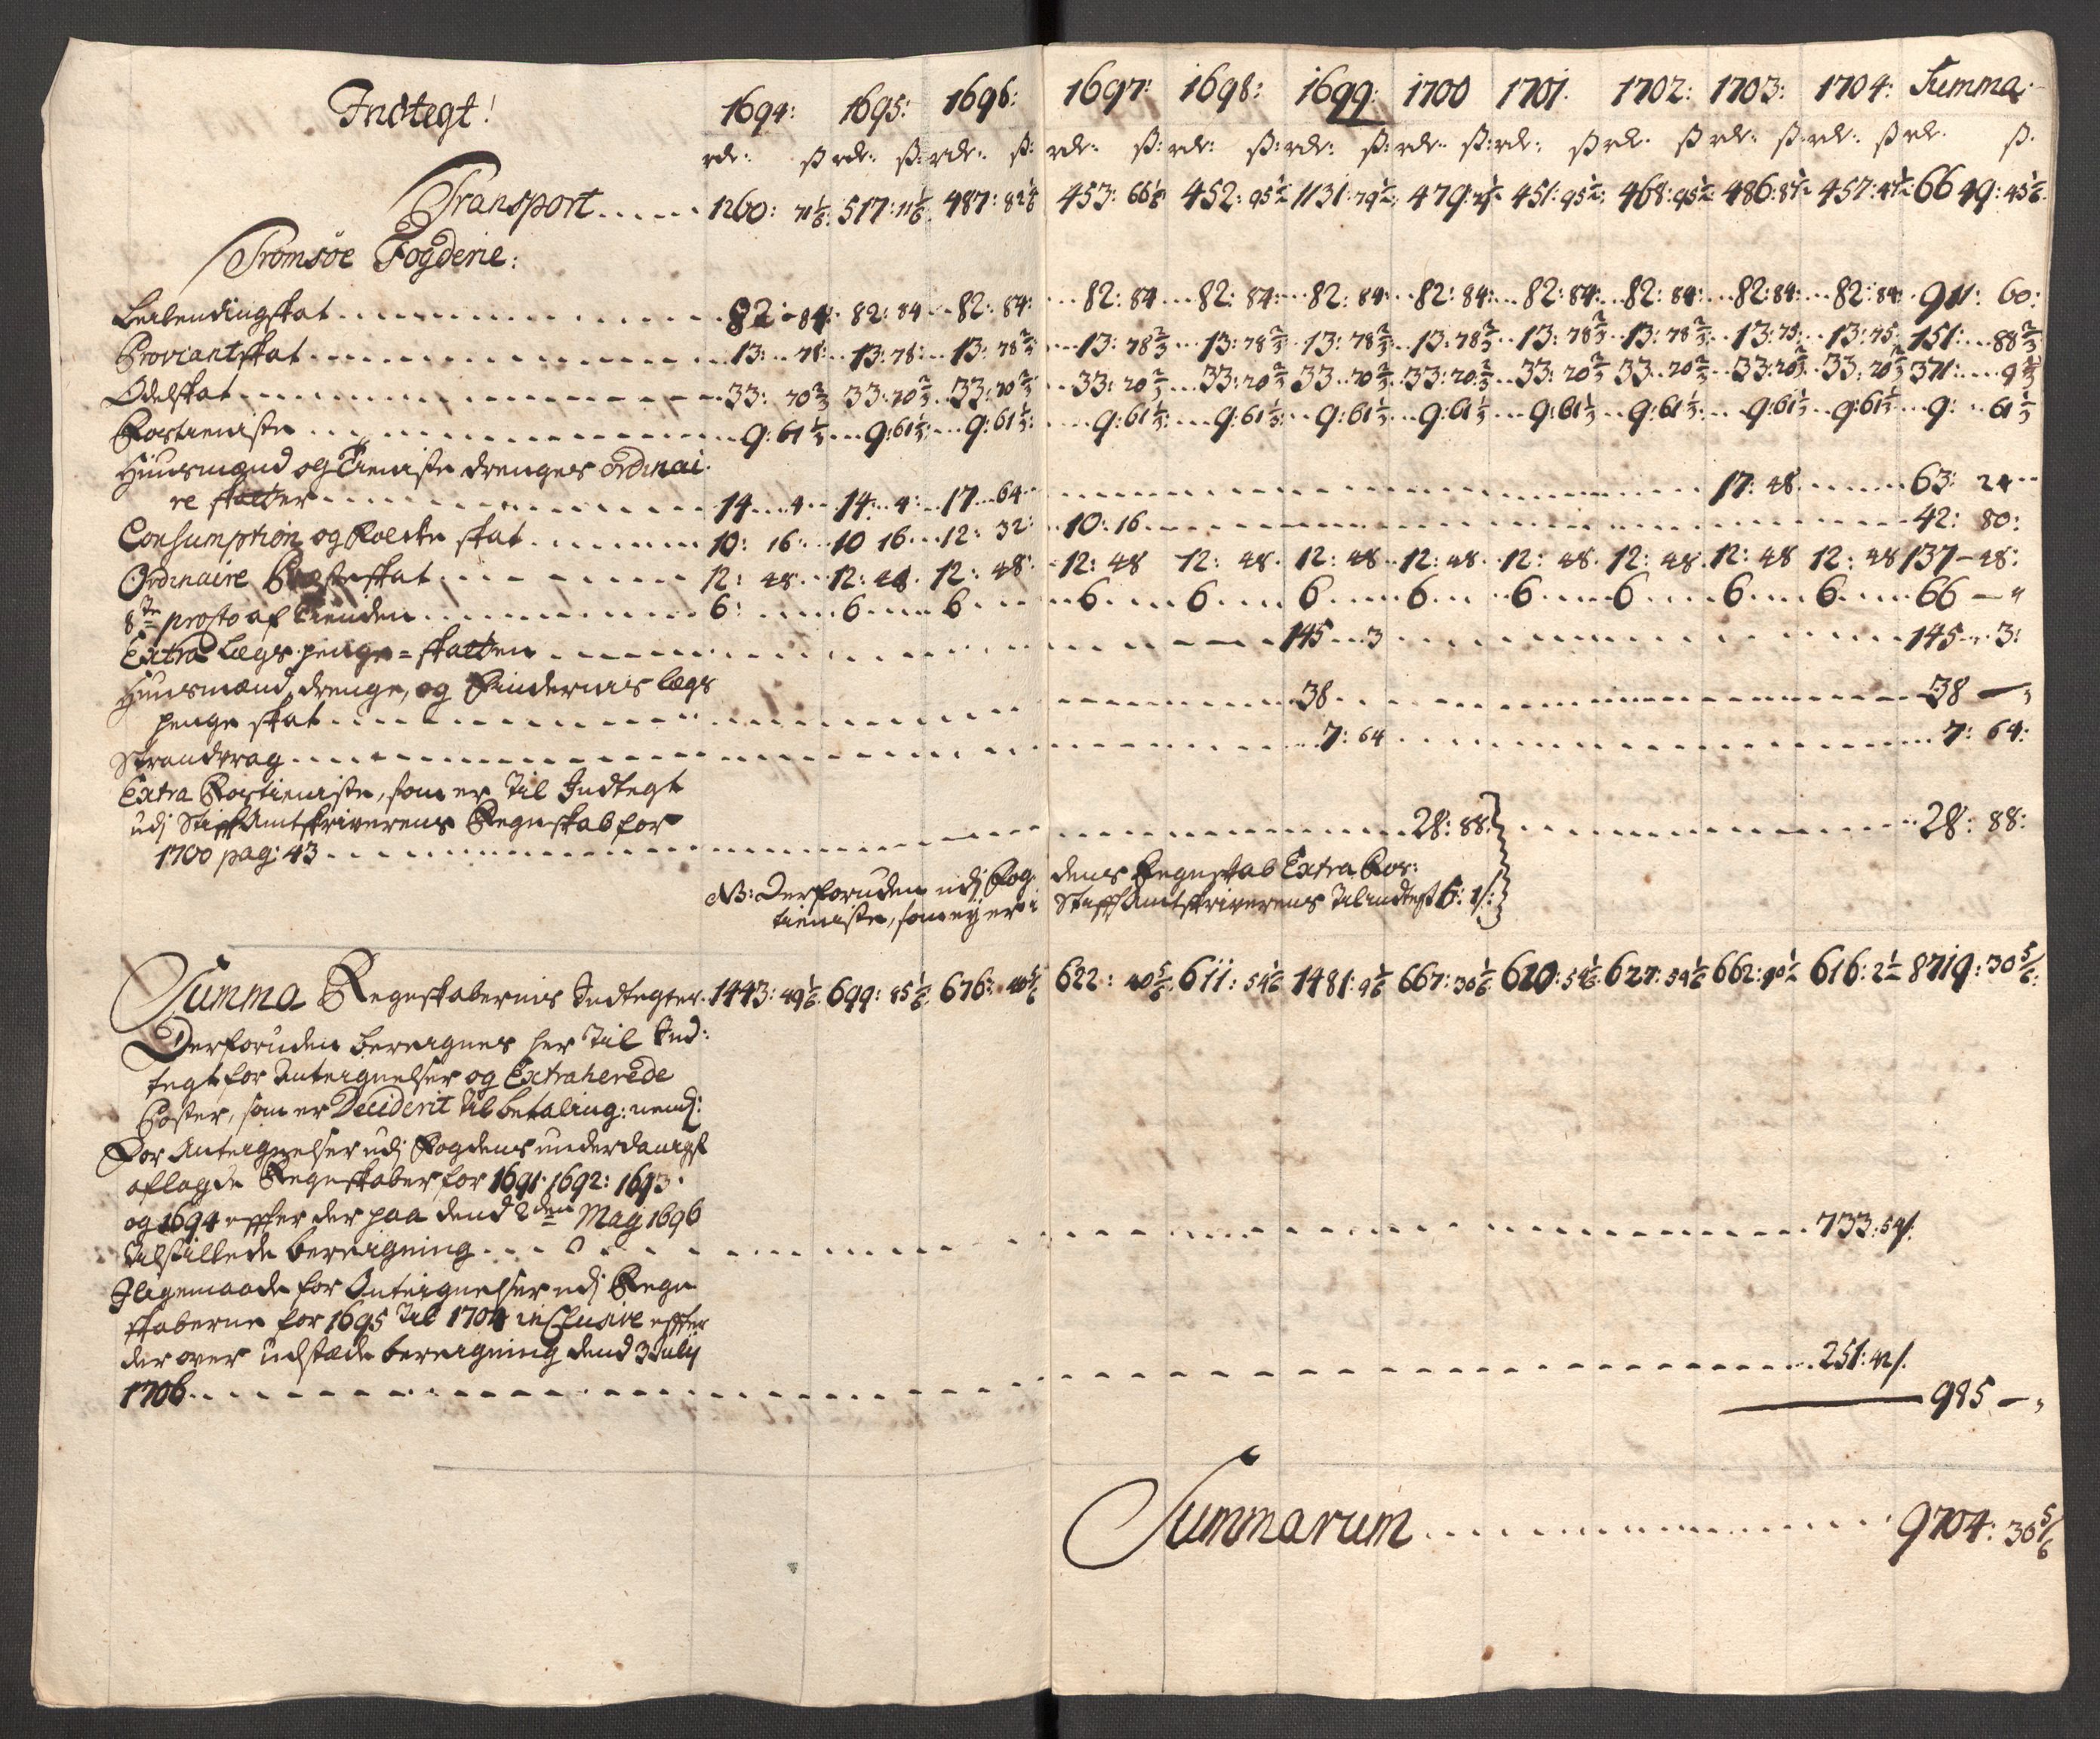 Indtegt! 1694: 1695: 1696: 1697: 1698: 1699: 1700 1701. 1702: 1703: 1704: Summa:
rdr: ß rdr: ß: rdr: ß: rdr: ß: rdr: ß: rdr: ß: rdr: ß: rdr: ß rdr. ß rdr: ß: rdr: ß rdr. ß.
Transport ..... 1260: 71 1/6: 517: 11 1/6 487: 82 1/6 453: 66 1/6 452: 95 1/2 1131: 79 1/2 479: 451: 95 1/2: 468: 95 1/2 486: 457: 6649: 45
Tromsöe Fogderie:
Leilendingskat ..... 82: 84: 82: 84 82: 84: 82: 84 82: 84: 82: 84: 82: 84: 82: 84: 82: 84: 82: 84: 82: 84 911: 60:
Proviantskat ..... 13: 78: 13: 78: 13: 78 2/3 13: 78 2/3 13: 78 2/3 13: 78 2/3 13: 78 2/3 13: 78 2/3 13: 78 2/3 13: 75: 13: 75 151: 88 2/3
Odelskat ..... 33: 70 2/3 33: 70 2/3 33: 70 2/3 33: 20 2/3 33: 20 2/3 33: 70 2/3 33: 20 2/3 33: 20 2/3 33: 20 2/3 33: 20 2/3 33: 20 2/3 371: 9
Rostieniste ..... 9: 61 1/3 9: 61 1/3: 9: 61 1/3: 9: 61 1/3: 9: 61 1/3: 9: 61 1/3 9: 61 1/3 9: 61 1/3 9: 61 1/3: 9: 61 1/3 9: 61 1/3 9: 61 1/3
Huusmænd og Tieniste drenges ordinai-
re skatter ..... 14 4 14: 4: 17 64 17: 48 63: 24
Consumption og Folcke skat ..... 10: 16: 10 16 12: 32: 10: 16 42: 80:
Ordinaire Præsteskat ..... 12: 48 12: 48. 12: 48: 12: 48 12: 48. 12: 48 12: 48 12: 48. 12: 48. 12: 48 12: 48 137 – 48:
8te prosto af Tienden ..... 6: 6 6 6 6 6 6 6 6 6 6 66 – "
Extra Lægs penge = skatten ..... 145 3 145 3:
Huusmænd, drenge, og Findernis lægs
penge skat ..... 38 38 – "
Strandvrag ..... 7: 64 7: 64:
Extra Rostieniste, som er Til Indtegt
udj Stiftamtskriverens Regnskab for
1700 pag: 43 ..... 28: 88: 28: 88:
NB: Derforuden udj Fog- dens Regnskab Extra Ros:
tieniste, som ej er i Stiftamtskriverens Til indtegt 6: 1/:
Summa Regnskabernis Indtegter. 1443: 49 1/6. 699: 85 1/2. 676: 40 5/6 622: 40 5/6. 611: 54 1/6 1481: 9 1/6 667: 30 1/6 620: 54 1/6. 627: 54 1/6 662: 616: 2 1/2 8719: 30 5/6:
Derforuden beregnes her Til Ind:
tegt for Antegnelser og Extraherede
Poster, som er Deciderit til betaling: nemlj:
For Antegnelser udj Fogdens underdanigst
aflagde Regnskaber for 1691. 1692: 1693.
og 1694 efter der paa dend 2den Maij 1696
tilstillede beregning ..... 733: 54/:
Iligemaade for Antegnelser udj Regn-
skaberne for 1695 Til 1704 inclusive efter
der over udstæde beregning dend 3 July
1706 ..... 251: 42/:
985 – "
Summarum ..... 9704: 30 5/6